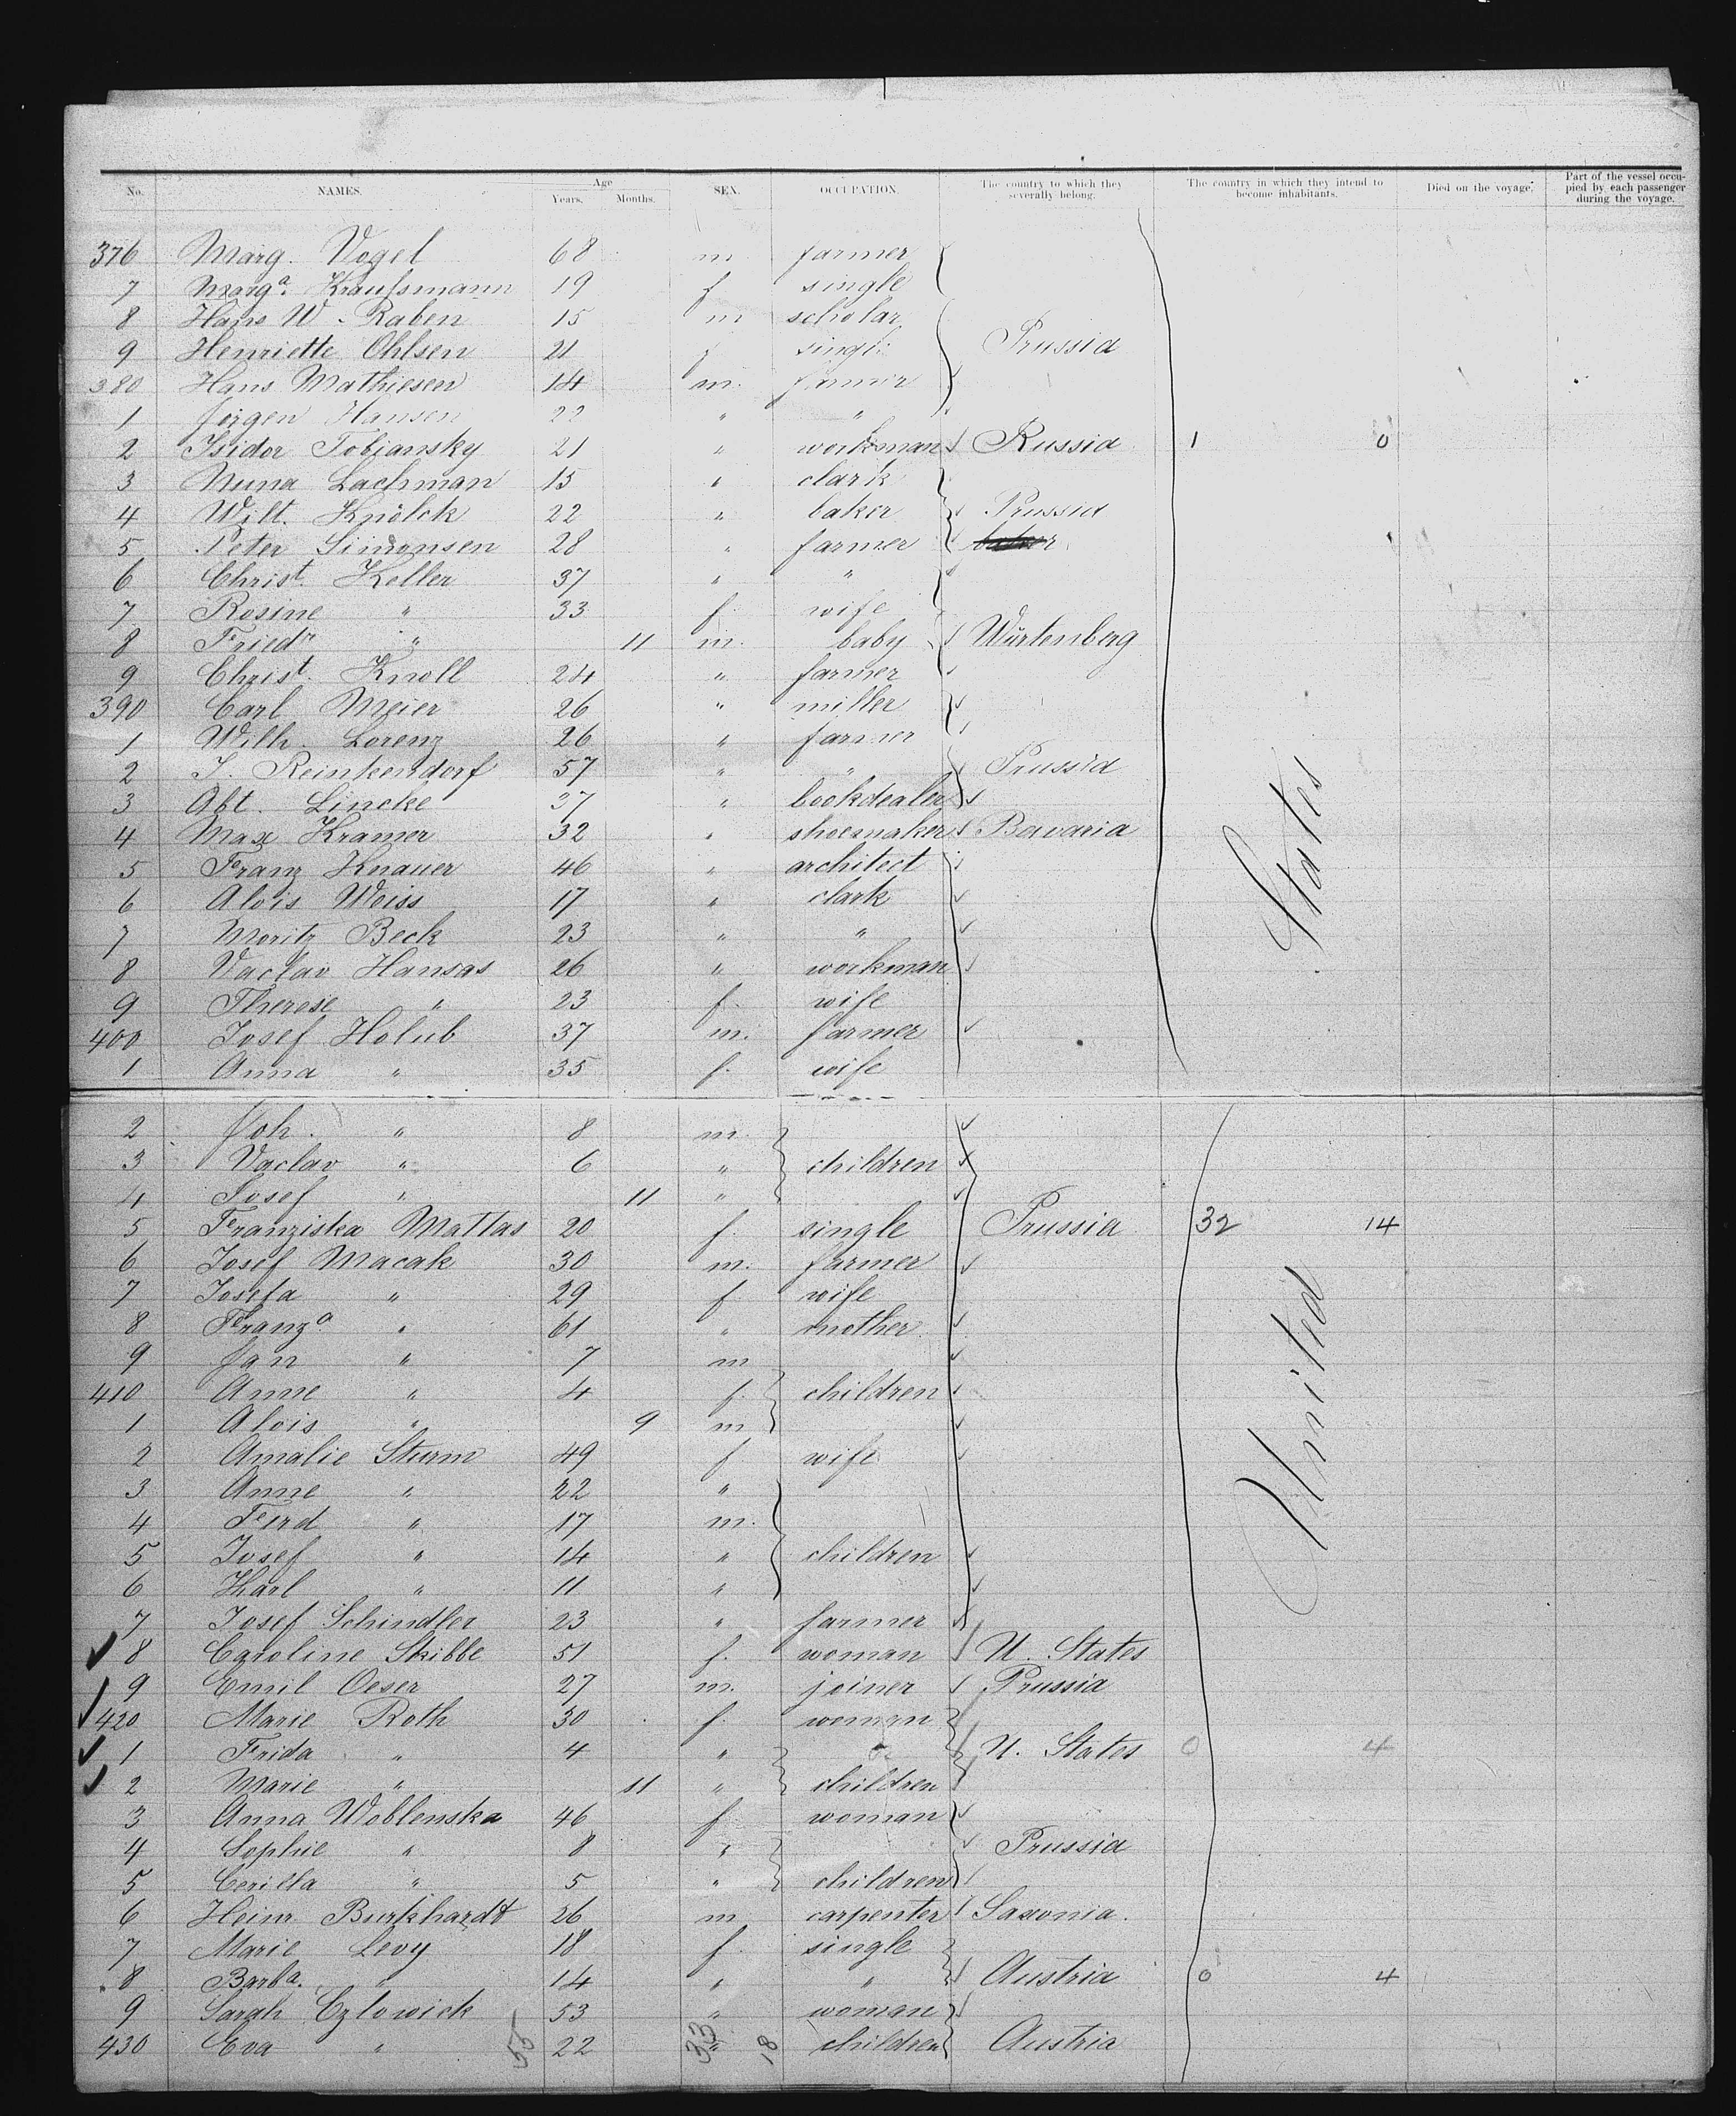 No. NAMES. Age Years. Months. SEX. OCCUPATION. The country to which they severally belong. The country in which they intend to become inhabitants. Died on the voyage. Part of the vessel occupied by each passenger during the voyage.
376 Marg. Vogel 68 m. farmer
7 Marga. Kraussmann 19 f single
8 Hans W. Raben 15 m scholar
9 Henriette Ohlsen 21 f single Prussia
380 Hans Mathiesen 14 m. farmer
1 Jörgen Hansen 22 " "
2 Isidor Tobiansky 21 " workman Russia 1 0
3 Nuna Lachman 15 " clark
4 Wilt. Knölck 22 " baker Prussia
5 Peter Simonsen 28 " farmer
6 Christ. Keller 37 " "
7 Rosine " 33 f. wife
8 Friedr " 11 m. baby Würtenberg
9 Christ. Knoll 24 " farmer
390 Carl Meier 26 " miller
1 Wilh. Lorenz 26 " farmer
2 J. Reinkendorf 57 " " Prussia
3 Abt. Lincke 37 " bookdealer
4 Max Kramer 32 " shoemaker Bavaria
5 Franz Knauer 46 " architect
6 Alois Weiss 17 " clark
7 Moritz Beck 23 " "
8 Vaclav Hansas 26 " workman
9 Therese " 23 f. wife
400 Josef Holub 37 m. farmer
1 Anna " 35 f. wife
2 Joh. " 8 m.
3 Vaclav " 6 " children
4 Josef " 11 "
5 Franziska Mattas 20 f. single Prussia 32 14
6 Josef Macak 30 m. farmer
7 Josefa " 29 f wife
8 Franza " 61 " mother
9 Jan " 7 m
410 Anne " 4 f. children
1 Alois " 9 m
2 Amalie Sturm 49 f wife
3 Anne " 22 "
4 Ferd " 17 m.
5 Josef " 14 " children
6 Karl " 11 "
7 Josef Schindler 23 " farmer
8 Caroline Skibbe 51 f. woman U. States
9 Emil Oeser 27 m. joiner Prussia
420 Marie Roth 30 f. woman
1 Frida " 4 " U. States 0 4
2 Marie " 11 " children
3 Anna Woblenska 46 f woman
4 Sophie " 8 " Prussia
5 Cerilla " 5 " children
6 Heinr. Burkhardt 26 m carpenter Saxonia.
7 Marie Levy 18 f. single
8 Barba. " 14 " " Austria 0 4
9 Sarah Czlowick 53 " woman
430 Eva " 22 " children Austria
United States
55 33 18